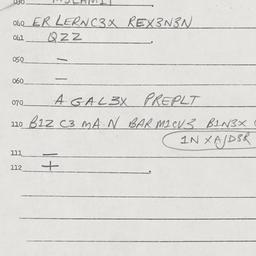 060 ER LERNC3X REX3N3N
061 QZZ
050 —
060 —
070 A GAL3X PREPLT
110 B1Z C3 MA N BAR M1CV3 B1N3X
1N XAJD3R
111 —
112 +